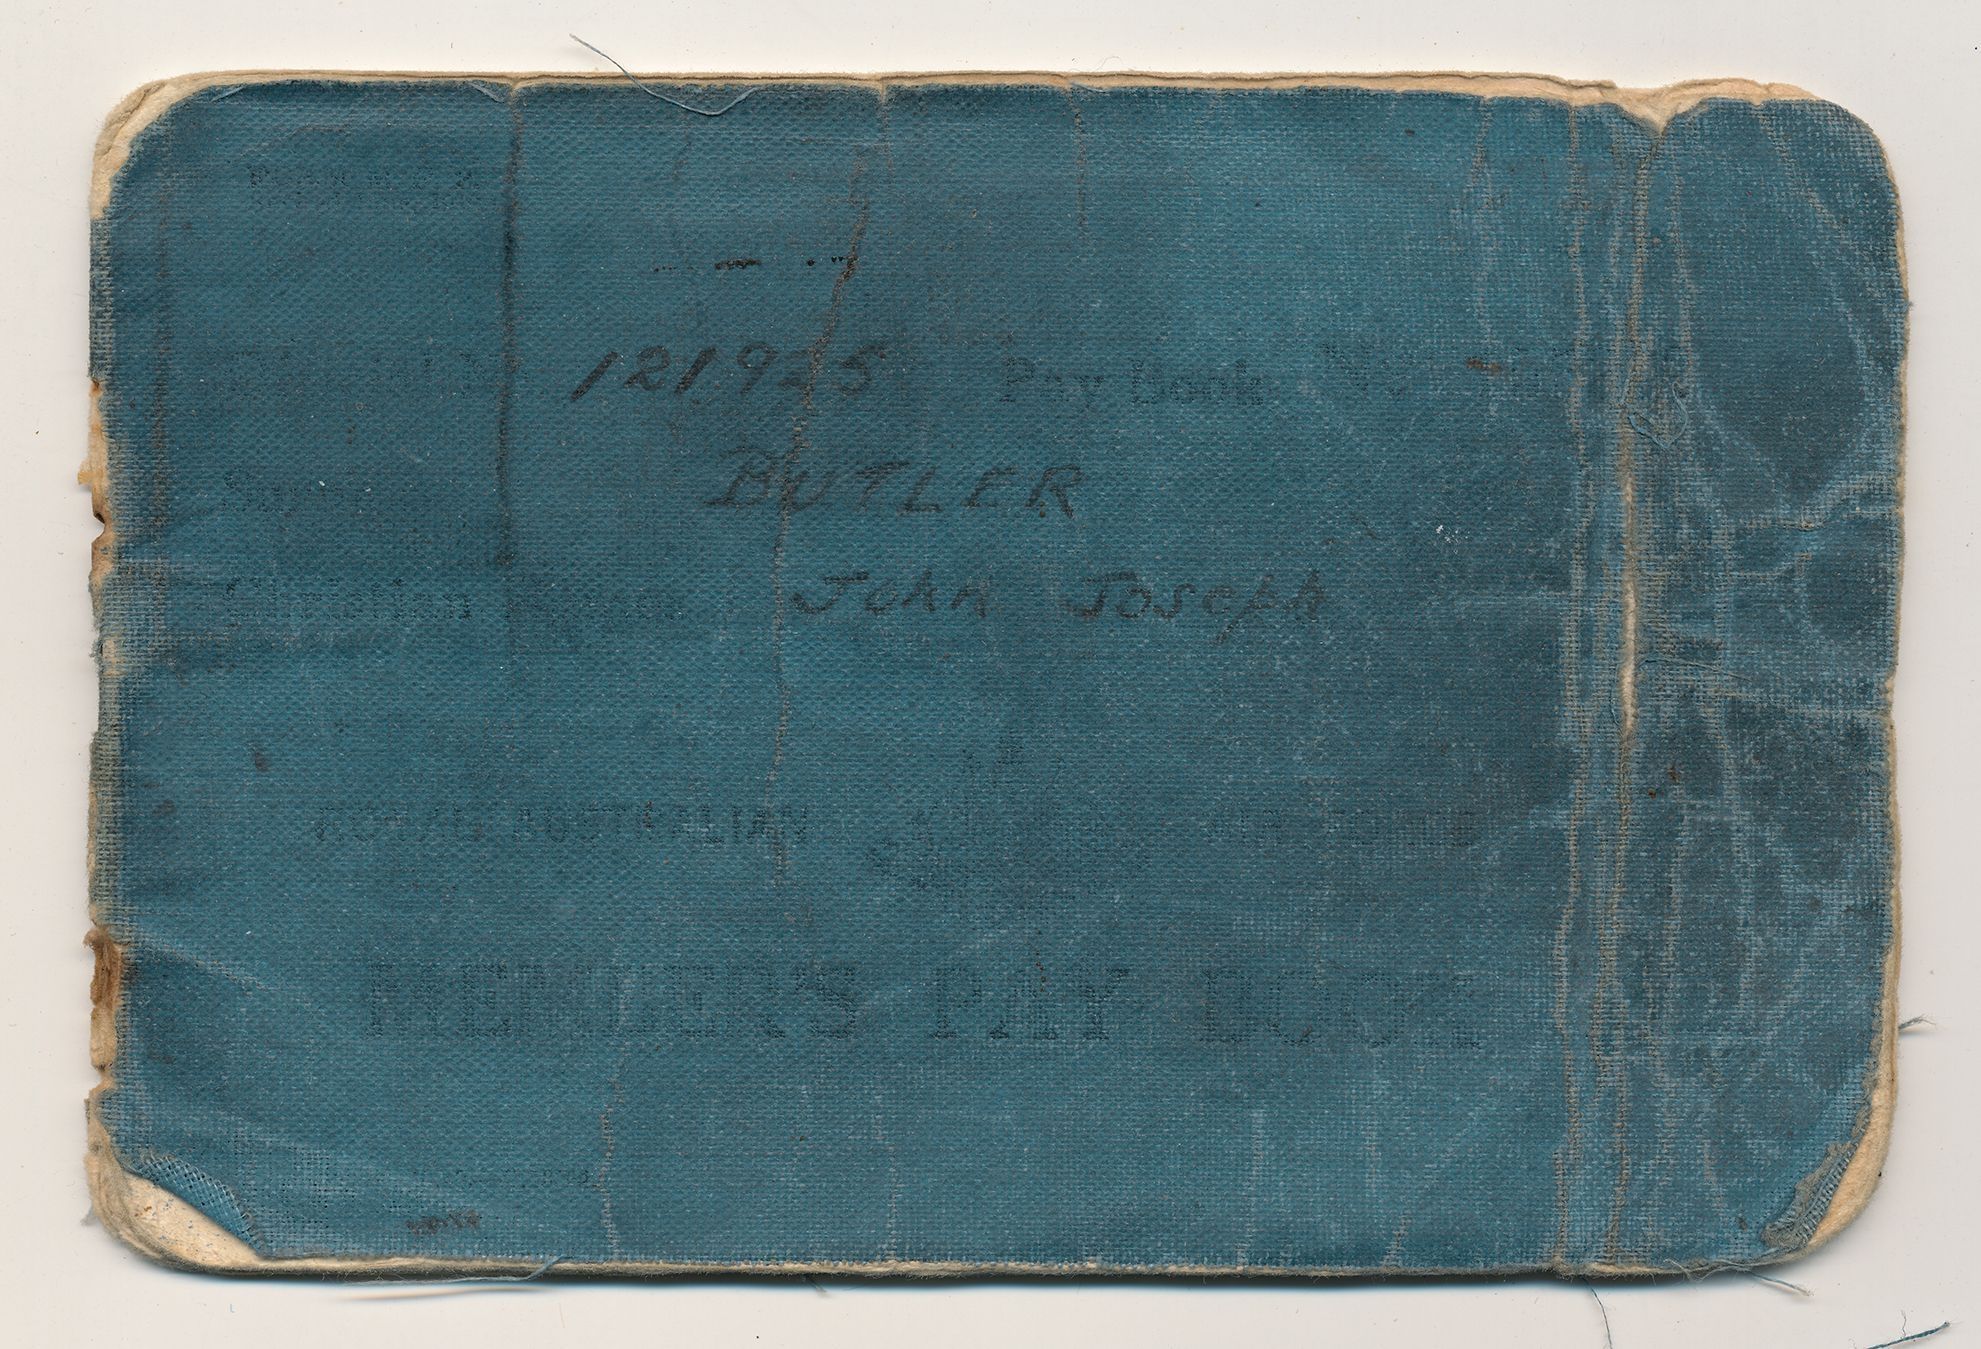 121925 Pay book No.
BUTLER
Christian John Joseph
ROYAL AUSTRALIAN AIR FORCE
MEMBER'S PAY BOOK